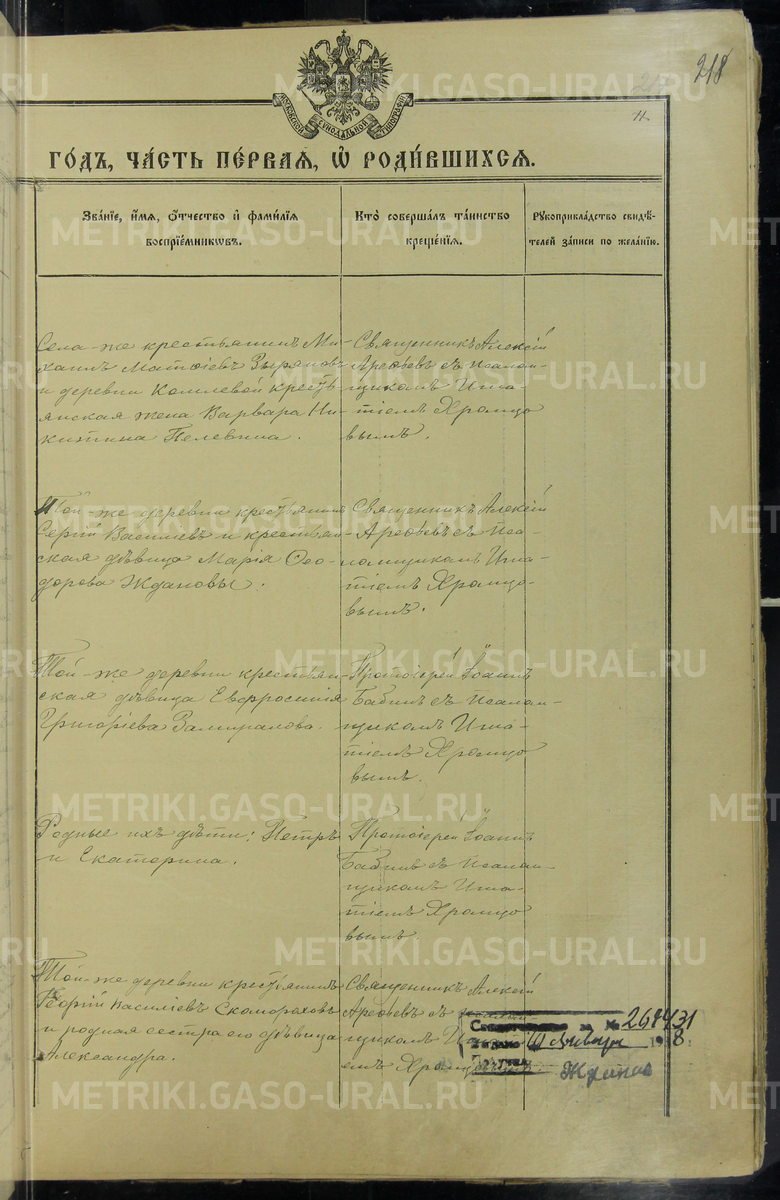 218
МОСКОВСКОЙ СѴНОДАЛЬНОЙ ТИПОГРАФІИ
ГО́ДЪ, ЧА́СТЬ ПЕ́РВАЯ, Ѽ РОДИ́ВШИХСЯ.
Зва́нїе, и́мя, о́тчество и҆ фами́лїя
воспрїе́мниковъ.
Кто̀ соверша́лъ та́инство
креще́нїя.
Рꙋкоприкла́дство свидѣ́-
телей за́писи по жела́нїю.
Села-же крестьянинъ Ми-
хаилъ Матѳіевъ Зыряновъ
и деревни Комлевой кресть-
янская жена Варвара Ни-
китина Пелевина.
Священникъ Алексій
Арефьевъ съ псалом-
щикомъ Игна-
тіемъ Хромцо
вымъ.
Той-же деревни крестьянинъ
Сергій Васильевъ и крестьян-
ская дѣвица Марія Ѳео-
дорова Ждановы.
Священникъ Алексій
Арефьевъ съ пса-
ломщикомъ Игна-
тіемъ Хромцо-
вымъ.
Той-же деревни крестьян-
ская дѣвица Евфросинія
Григоріева Замиралова.
Протоіерей Іоаннъ
Бабинъ съ псалом-
щикомъ Игна-
тіемъ Хромцо
вымъ.
Родные ихъ дѣти: Петръ
и Екатерина.
Протоіерей Іоаннъ
Бабинъ съ псалом-
щикомъ Игна-
тіемъ Хромцо
вымъ.
Той-же деревни крестьянинъ
Георгій Василіевъ Скомороховъ
и родная сестра его дѣвица
Александра.
Священникъ Алексій
Арефьевъ съ псалом-
щикомъ
емъ
за № 269431
января
METRIKI.GASO-URAL.RU